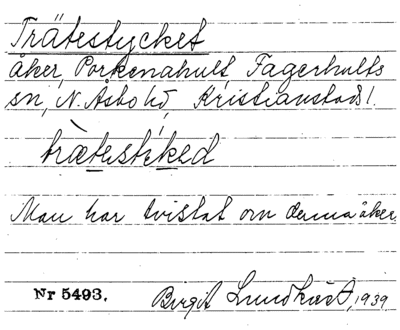 Trätestycket
åker, Porkenahult, Fagerhults
sn, N. Åsbo hd, Kristianstads l.
trætestiked
Man har tvistat om denna åker.
Nr 5493. Birgit Lundkvist, 1939